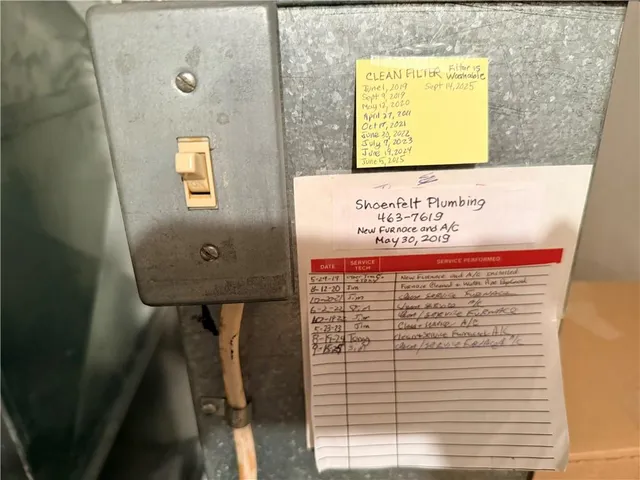 CLEAN FILTER Filter is Washable
June 1, 2019 Sept 14, 2025
Sept 9, 2019
May 12, 2020
April 27, 2021
Oct 19, 2021
June 20, 2022
July 9, 2023
June 14, 2024
June 5, 2025
Shoenfelt Plumbing
463-7619
New Furnace and A/C
May 30, 2019
DATE SERVICE TECH SERVICE PERFORMED
5-29-19 New Furnace and A/C installed
8-12-20 Jim Furnace Cleaned + Water Pipe
10-20-21 Jim Clean SERVICE FURNACE
6-2-22
10-19-22 Jim SERVICE FURNACE
5-23-23 Jim Clean A/C
8-19-24 Furnace A/C
9-15-25 Clean/Service Furnace A/C